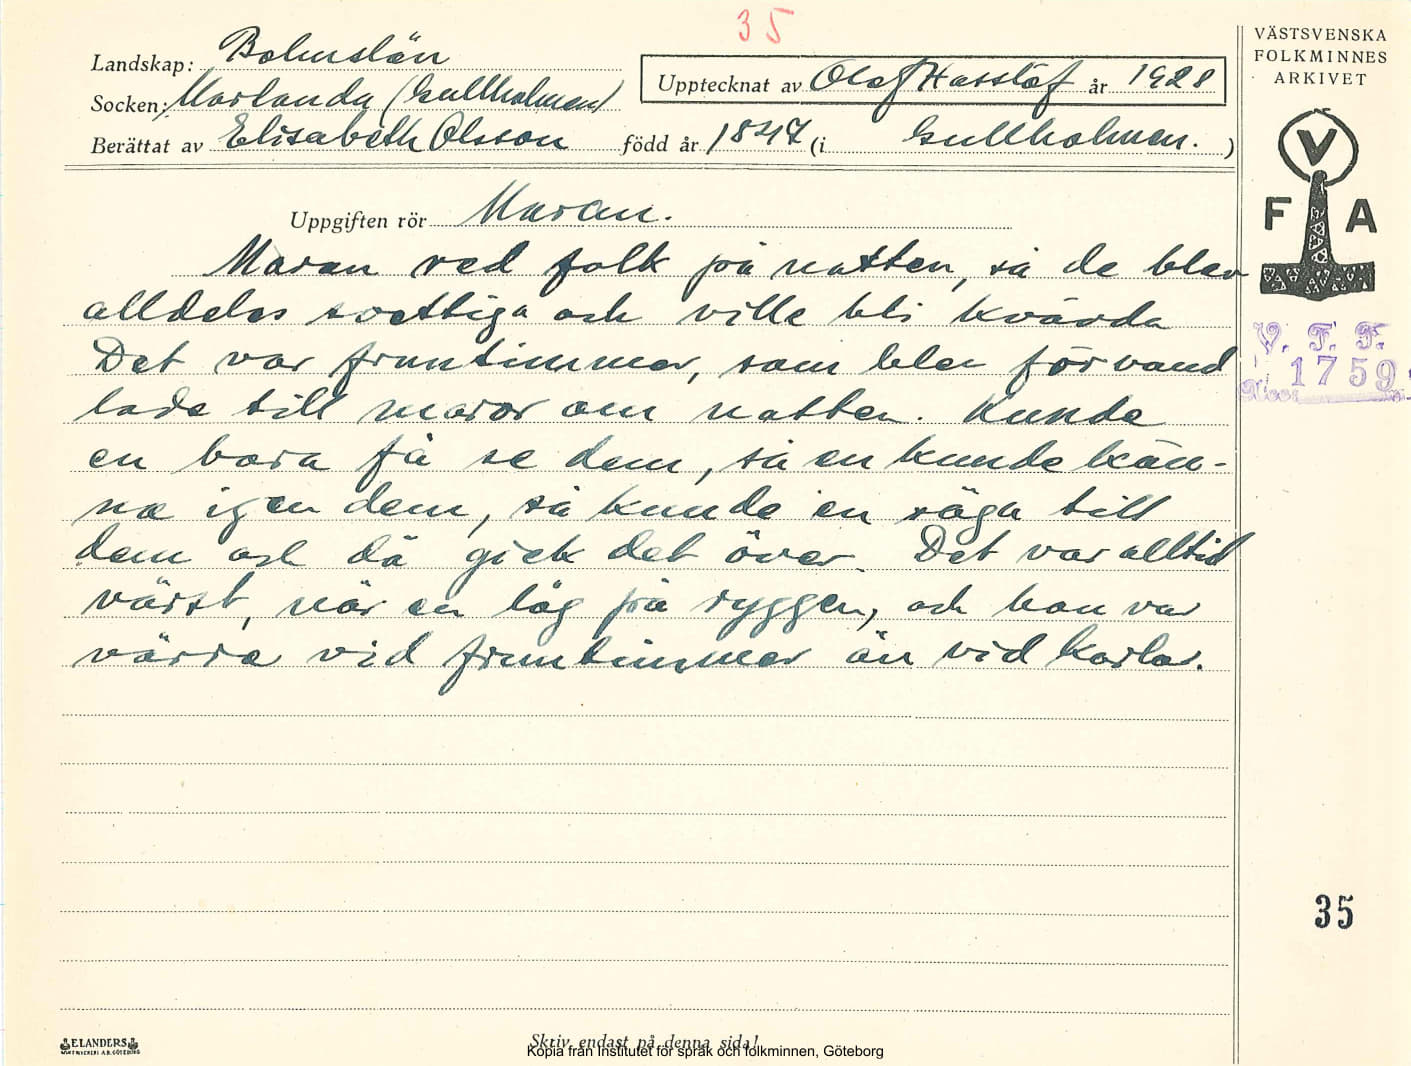 35
Landskap: Bohuslän
Socken: Morlanda (Gullholmen)
Berättat av Elisabeth Olsson född år 1847 (i Gullholmen. )
Upptecknat av Olof Hasslöf år 1928
VÄSTSVENSKA
FOLKMINNES
ARKIVET
V
F A
V. F. F.
1759
Uppgiften rör Maran.
Maran red folk på natten, så de blev
alldeles svettiga och ville bli kvävda
Det var fruntimmer, som blev förvand
lade till maror om natten. Kunde
en bara få se dem, så en kunde kän-
na igen dem, så kunde en säga till
dem och då gick det över. Det var alltid
värst, när en låg på ryggen, och hon var
värre vid fruntimmer än vid karlar.
35
ELANDERS
Skriv endast på denna sida!
Kopia från Institutet för språk och folkminnen, Göteborg